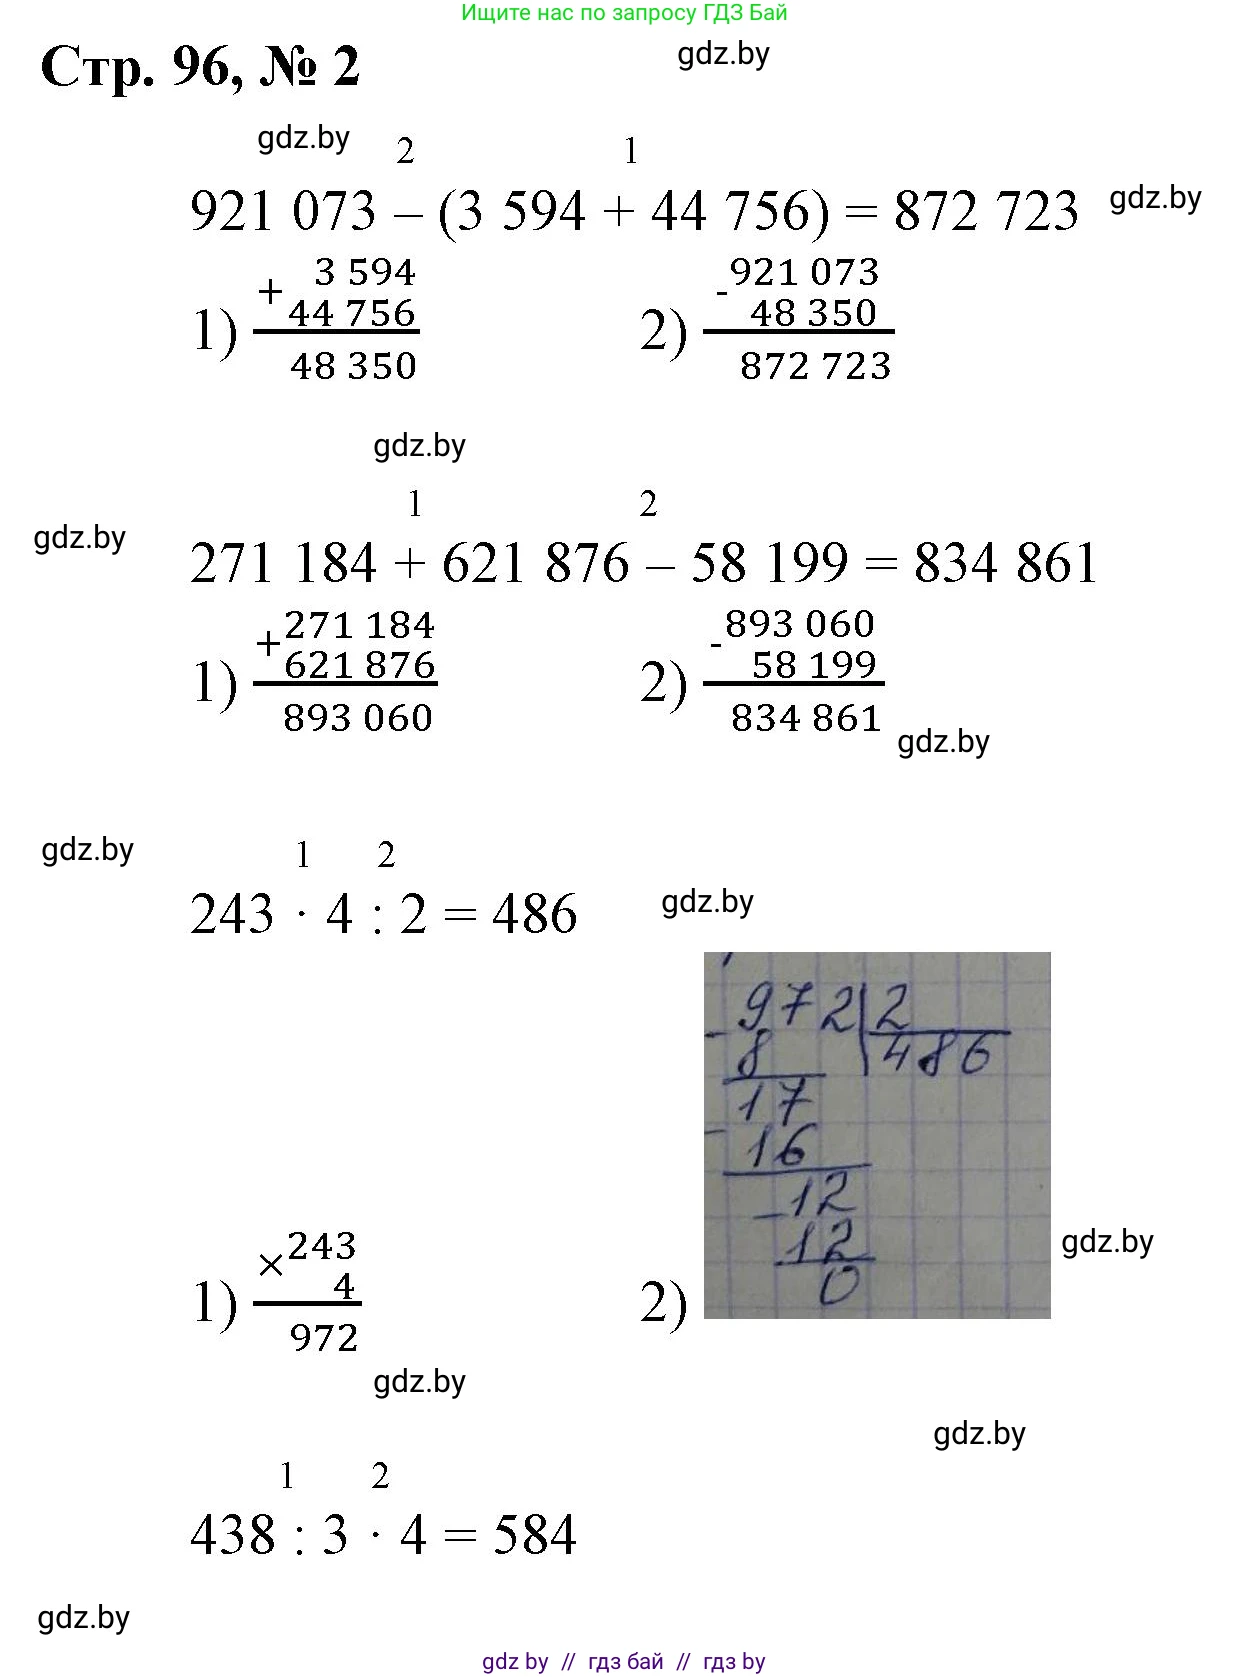 Ищите нас по запросу ГДЗ Бай
Стр. 96, № 2
gdz.by
gdz.by
2 1
921 073 – (3 594 + 44 756) = 872 723
gdz.by
1) + 3 594
44 756
48 350
2) - 921 073
48 350
872 723
gdz.by
1 2
gdz.by
271 184 + 621 876 – 58 199 = 834 861
1) + 271 184
621 876
893 060
2) - 893 060
58 199
834 861
gdz.by
gdz.by
1 2
243 · 4 : 2 = 486
gdz.by
1) × 243
4
972
2) - 972 2
8 486
17
- 16
- 12
12
0
gdz.by
gdz.by
gdz.by
1 2
438 : 3 · 4 = 584
gdz.by
gdz by // гдз бай // гдз by